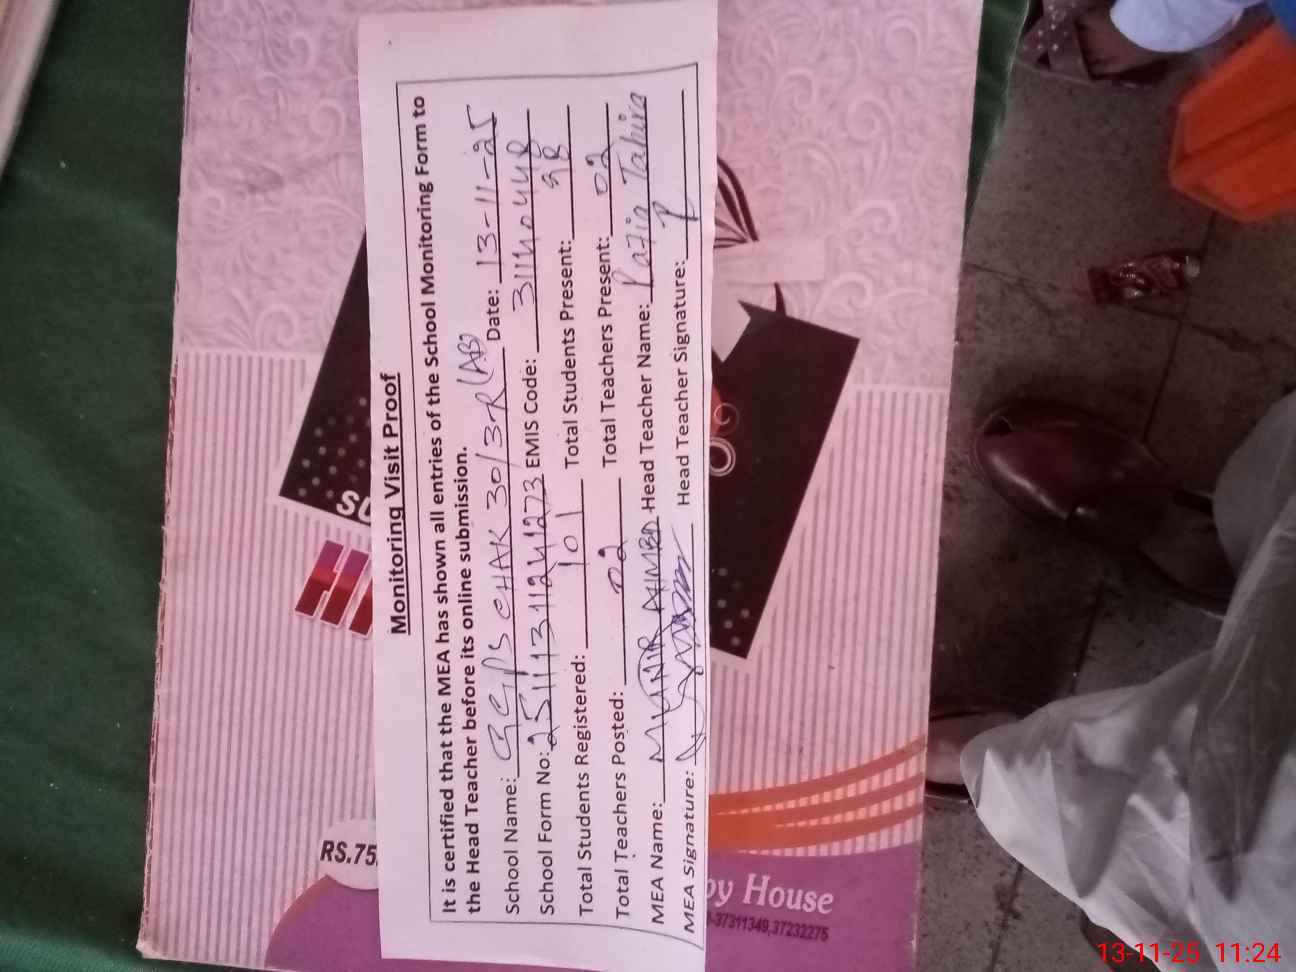 Monitoring Visit Proof
It is certified that the MEA has shown all entries of the School Monitoring Form to
the Head Teacher before its online submission.
School Name: GGPS CHAK 30/3-R (AB) Date: 13-11-25
School Form No: 25111311241273 EMIS Code: 31140448
Total Students Registered: 101 Total Students Present: 98
Total Teachers Posted: 02 Total Teachers Present: 02
MEA Name: MUNIR AHMED Head Teacher Name: Razia Tahira
MEA Signature: Head Teacher Signature:
SU
RS.75
py House
37311349,37232275
13-11-25 11:24